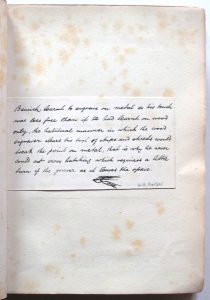 Bewick learnt to engrave on metal so his touch
was less free than if he had learnt on wood
only, the habitual manner in which the wood
engraver clears his tool of chips and shreds would
break the point on metal, that is why he never
could cut cross hatching which requires a little
turn of the graver as it leaves the space.